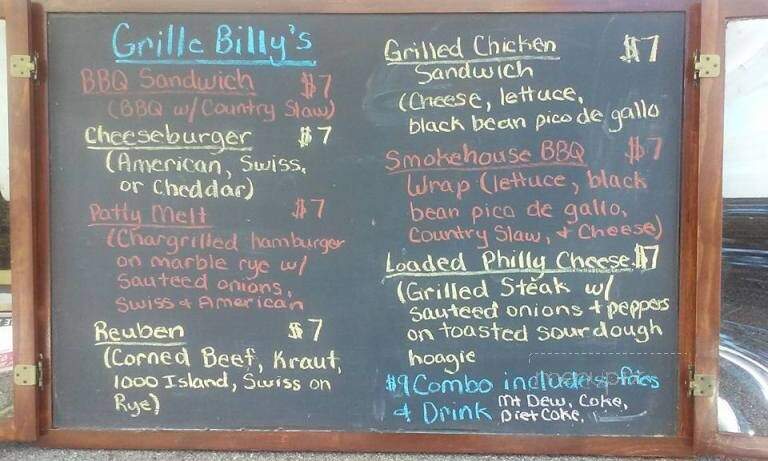 Grille Billy's
BBQ Sandwich $7
(BBQ w/ Country Slaw)
Cheeseburger $7
(American, Swiss,
or Cheddar)
Patty Melt $7
(Chargrilled hamburger
on marble rye w/
Sauteed onions,
Swiss & American
Reuben $7
(Corned Beef, Kraut,
1000 Island, Swiss on
Rye)
Grilled Chicken $7
Sandwich
(Cheese, lettuce,
black bean pico de gallo
Smokehouse BBQ $7
Wrap (lettuce, black
bean pico de gallo,
Country Slaw, & Cheese)
Loaded Philly Cheese $7
(Grilled Steak w/
sauteed onions + peppers
on toasted sourdough
hoagie
$9 Combo includes fries
& Drink Mt Dew, Coke,
Diet Coke,